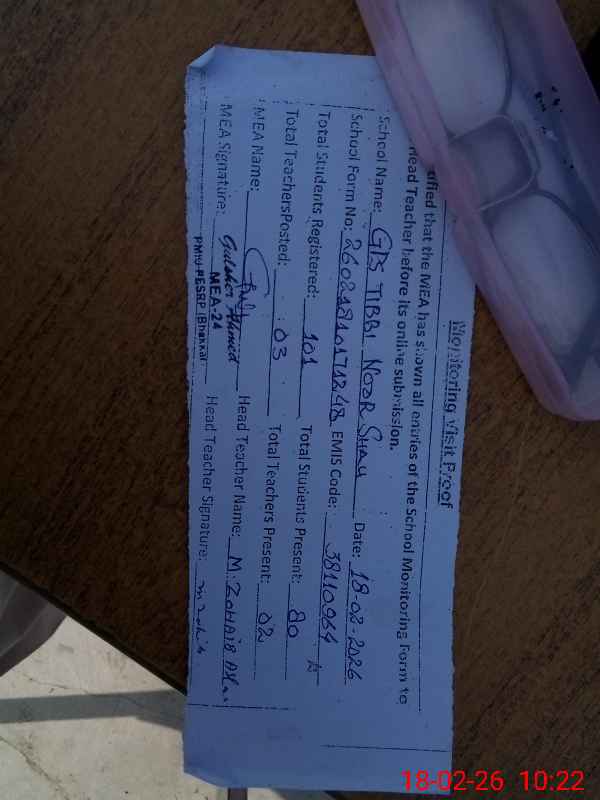 Monitoring Visit Proof
tified that the MEA has shown all entries of the School Monitoring Form to
Head Teacher before its online submission.
School Name: G/S TIBBI NOOR SHAH Date: 18-02-2026
School Form No: EMIS Code: 38110964
Total Students Registered: 101 Total Students Present: 80
Total TeachersPosted: 03 Total Teachers Present: 02
MEA Name: Head Teacher Name: M. ZOHAIB
MEA Signature: Gulsher Ahmed Head Teacher Signature:
MEA-24
PMIU-PESRP (Bhakkar)
18-02-26 10:22